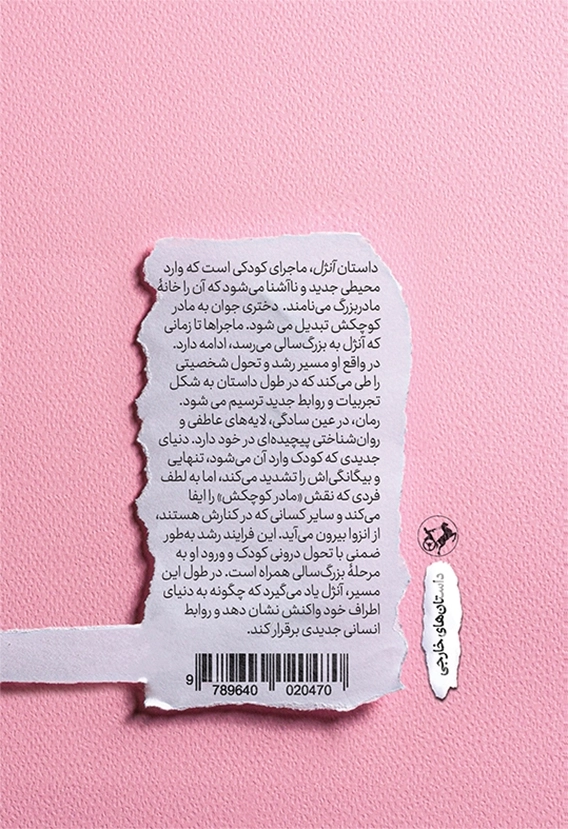 داستان آنژل، ماجرای کودکی است که وارد
محیطی جدید و ناآشنا می‌شود که آن را خانهٔ
مادربزرگ می‌نامند. دختری جوان به مادر
کوچکش تبدیل می شود. ماجراها تا زمانی
که آنژل به بزرگ‌سالی می‌رسد، ادامه دارد.
در واقع او مسیر رشد و تحول شخصیتی
را طی می‌کند که در طول داستان به شکل
تجربیات و روابط جدید ترسیم می شود.
رمان، در عین سادگی، لایه‌های عاطفی و
روان‌شناختی پیچیده‌ای در خود دارد. دنیای
جدیدی که کودک وارد آن می‌شود، تنهایی
و بیگانگی‌اش را تشدید می‌کند، اما به لطف
فردی که نقش «مادر کوچکش» را ایفا
می‌کند و سایر کسانی که در کنارش هستند،
از انزوا بیرون می‌آید. این فرایند رشد به‌طور
ضمنی با تحول درونی کودک و ورود او به
مرحلهٔ بزرگ‌سالی همراه است. در طول این
مسیر، آنژل یاد می‌گیرد که چگونه به دنیای
اطراف خود واکنش نشان دهد و روابط
انسانی جدیدی برقرار کند.
9 789640 020470
داستان‌های خارجی